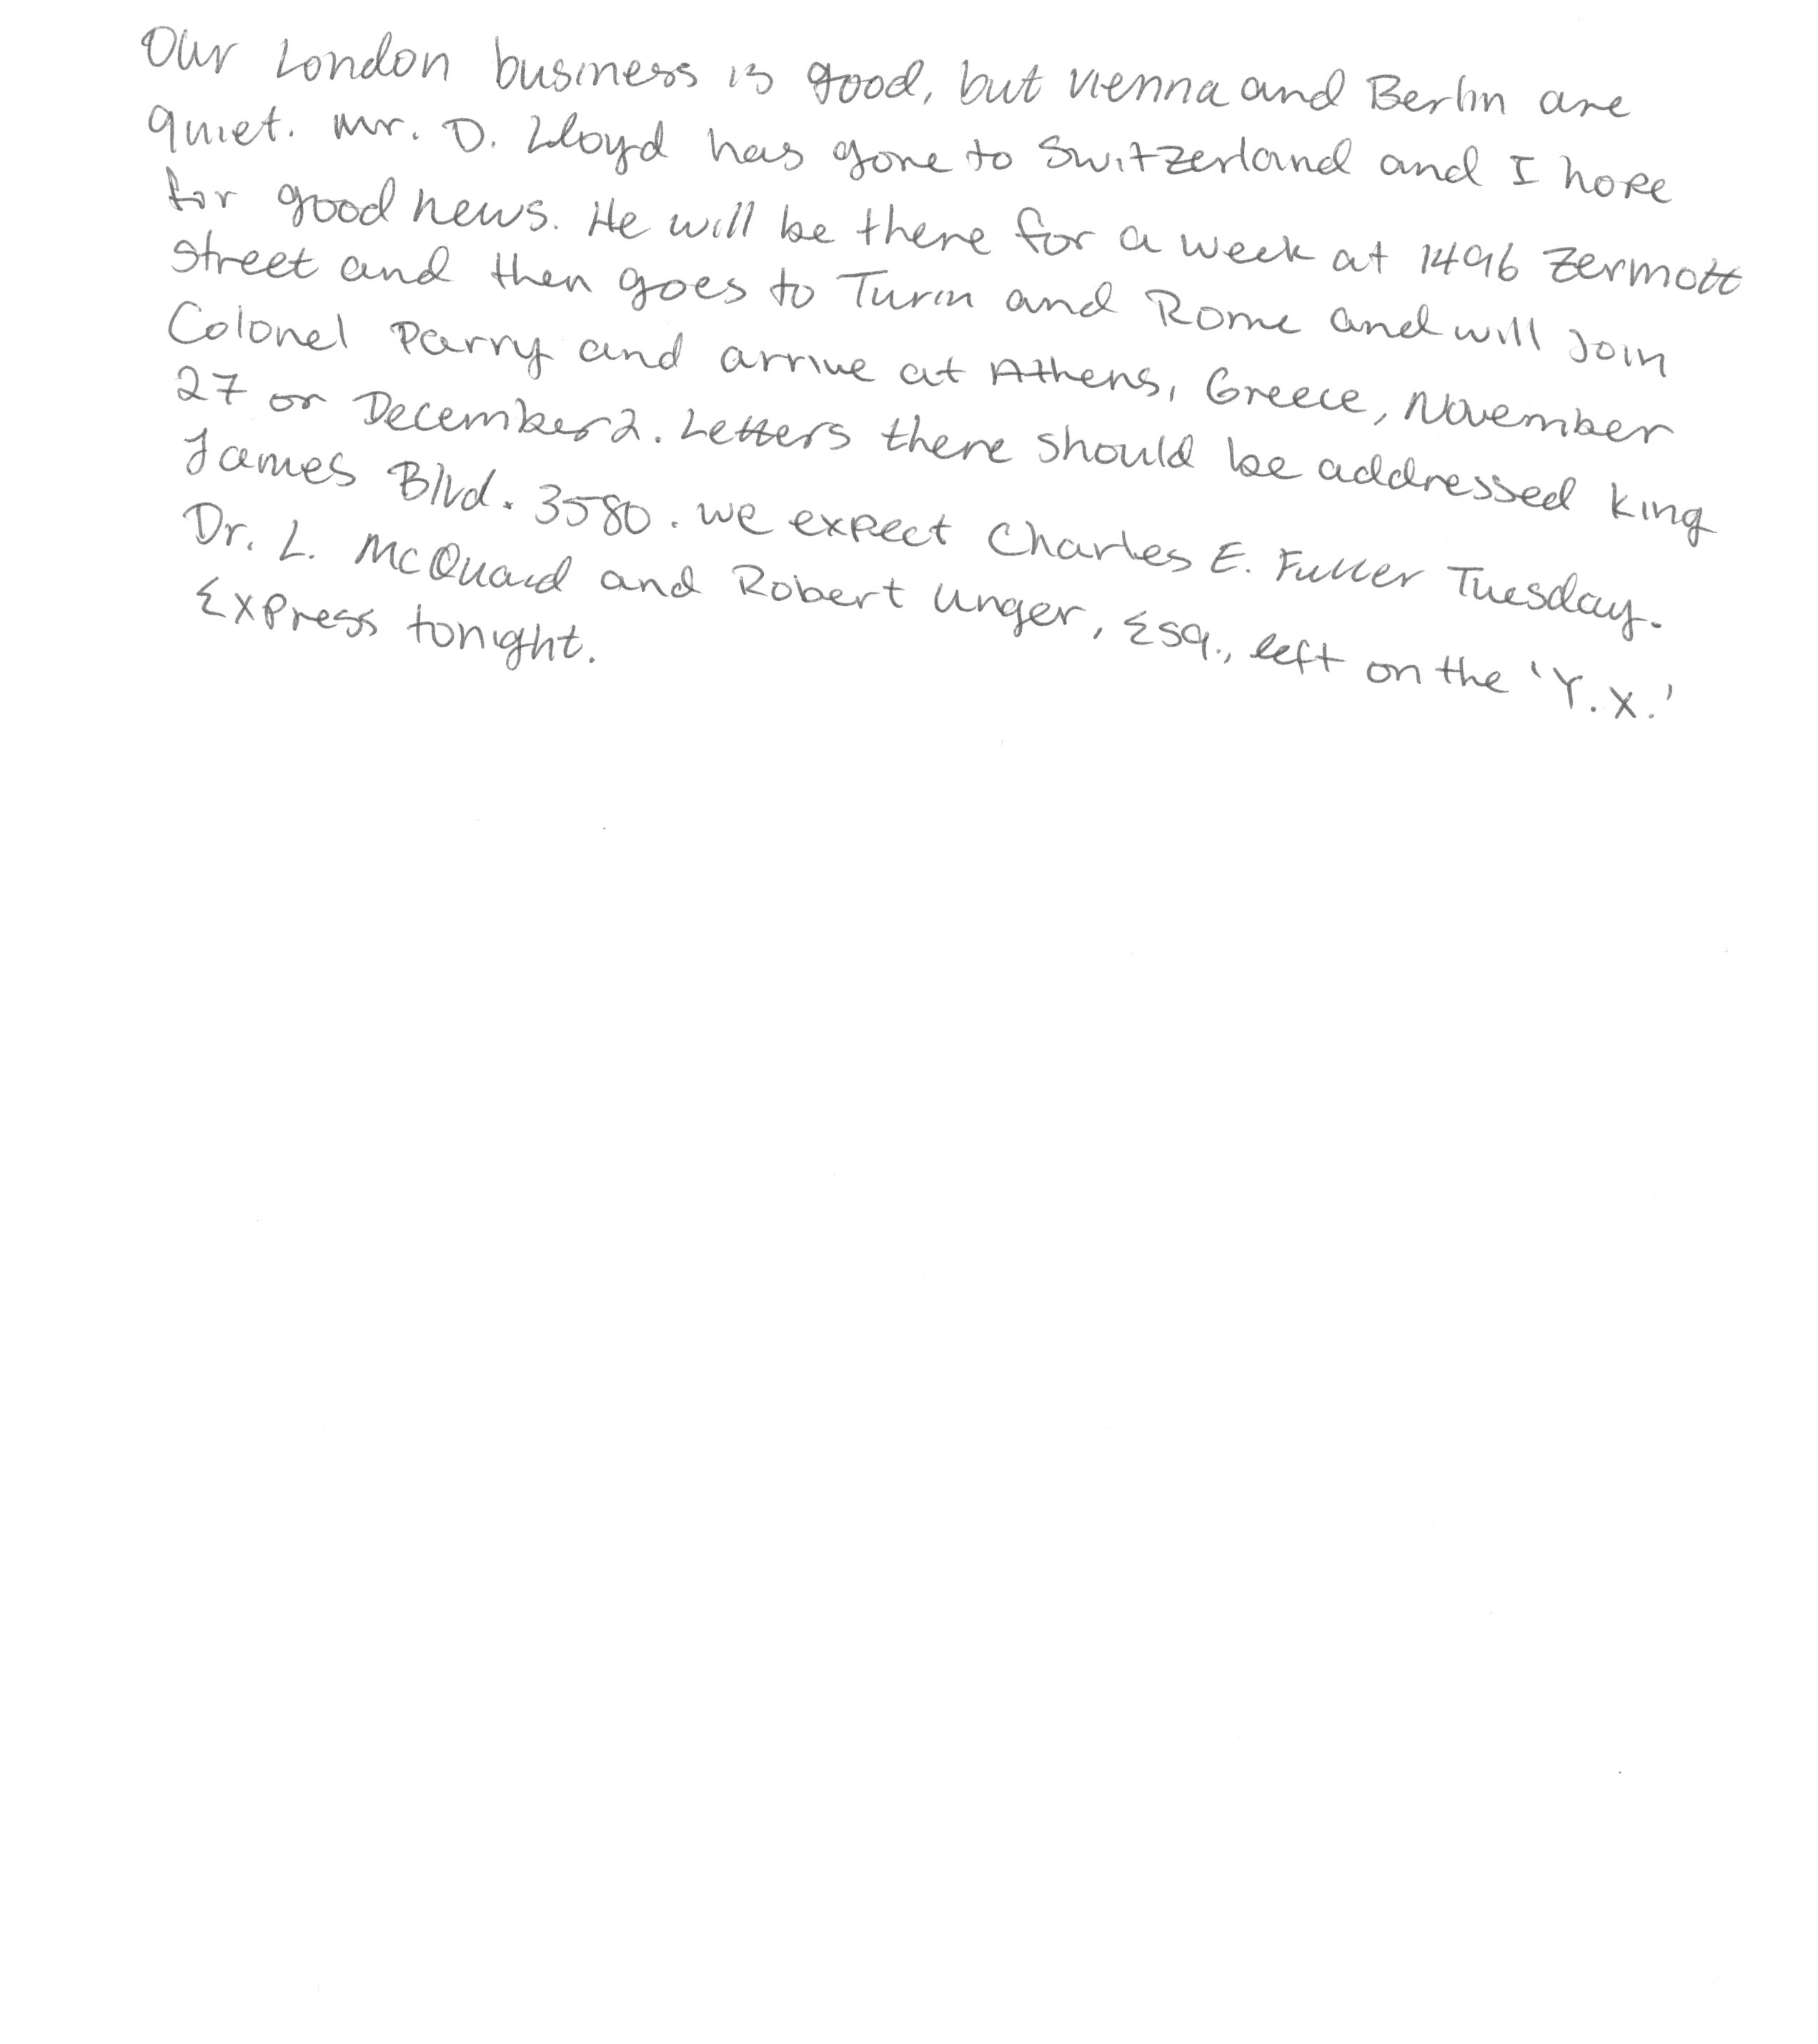 Our London business is good, but Vienna and Berlin are
quiet. Mr. D. Lloyd has gone to Switzerland and I hope
for good news. He will be there for a week at 1496 Zermott
street and then goes to Turin and Rome and will join
Colonel Parry and arrive at Athens, Greece, November
27 or December 2. Letters there should be addressed King
James Blvd. 3580. We expect Charles E. Fuller Tuesday.
Dr. L. McQuaid and Robert Unger, Esq., left on the 'Y.X.'
Express tonight.